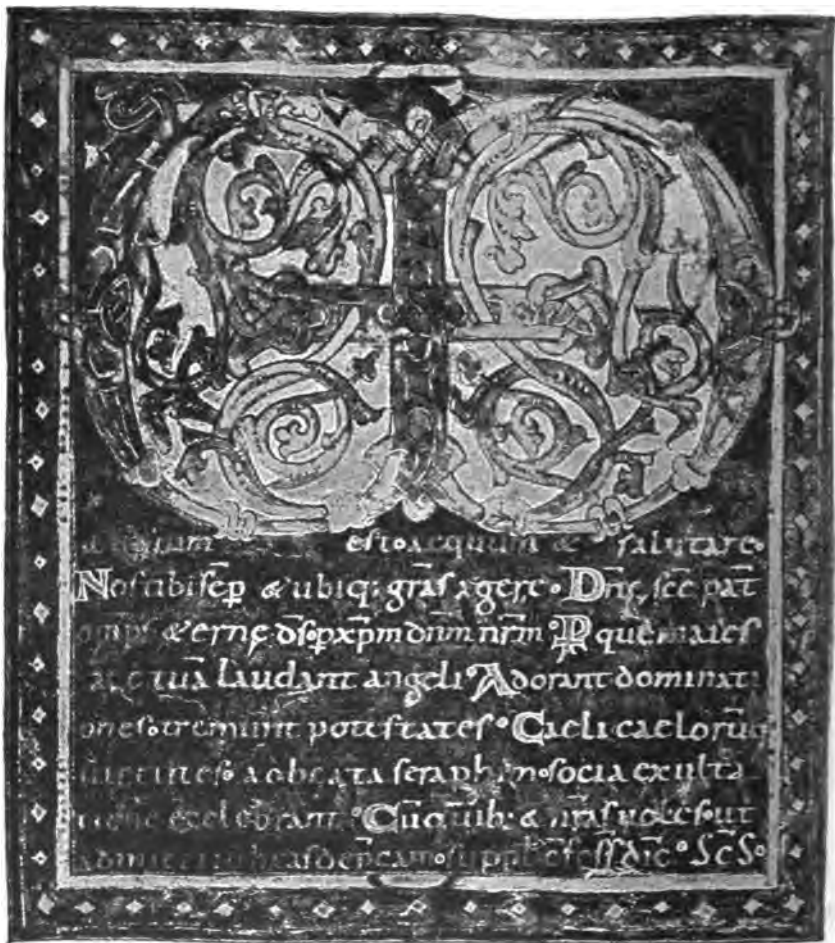 est aequum & salutare.
Nos tibi sēp & ubiq; grās agere. Dn̄e, sc̄e pat̄
omp̄s & erne d̄s. p xp̄m dn̄m nr̄m. P quē maies
tuā laudant angeli. Adorant dominati
ones. tremunt potestates. Caeli caelorū
uirtutes. ac beata seraphim. socia exulta
tione ꝯcelebrant. Cū quib: & nr̄as uoces. ut
admitti iubeas dep̄camur. supp ꝯfess dic̄. SC̄S.